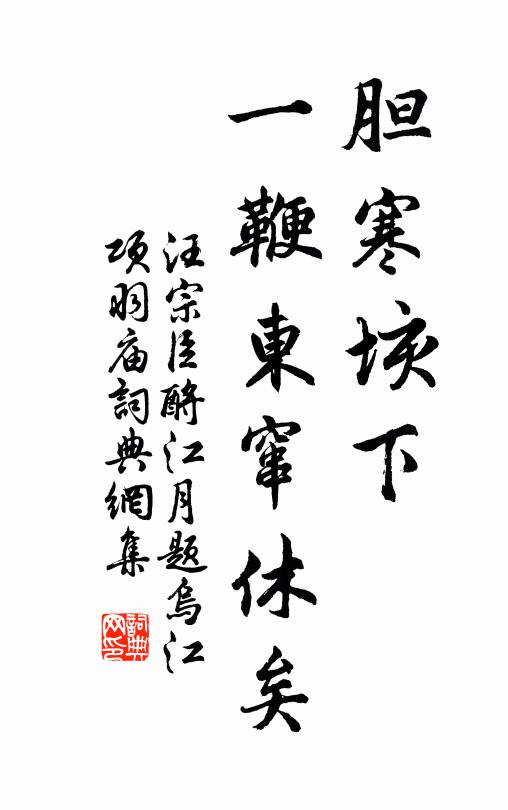 胆寒垓下
一鞭東窜休矣
汪宗臣酹江月题乌江
项羽庙詞典網集
詞典网印